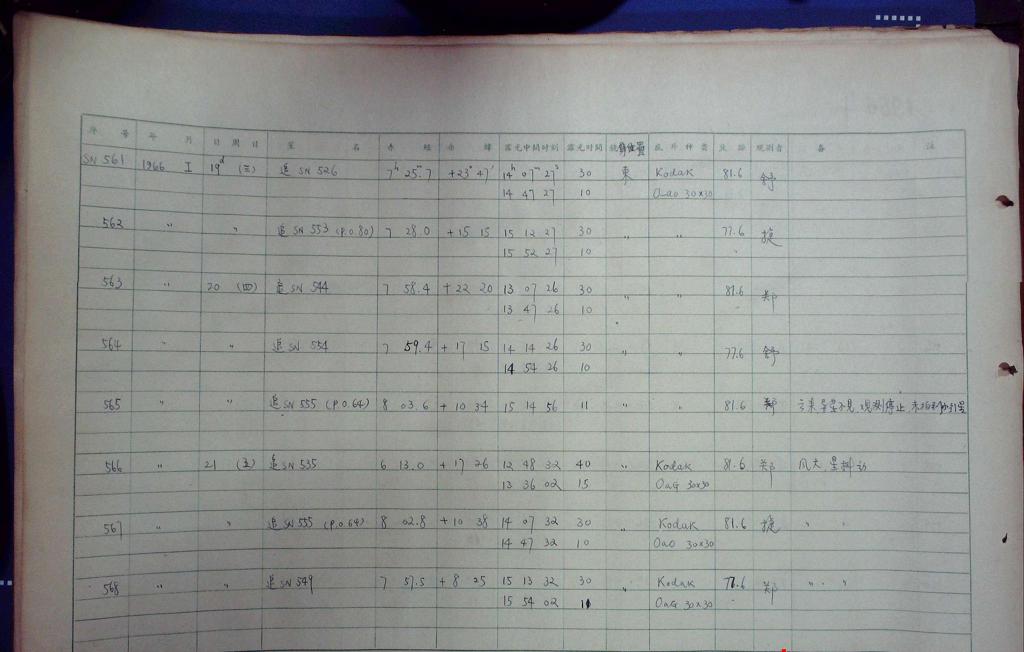 序号 年 月 日 周日 星 名 赤 经 赤 纬 露光中间时刻 露光时间 底片种类 观测者 备 注
SN 561 1966 I 19d (三) 追 SN 526 7h 25.m7 +23° 47' 14h 07m 27s 30 東 Kodak 81.6 舒
14 47 27 10 OaO 30×30
562 〃 〃 追 SN 553 (P.0.80) 7 28.0 +15 15 15 12 27 30 〃 〃 77.6 捷
15 52 27 10
563 〃 20 (四) 追 SN 544 7 58.4 +22 20 13 07 26 30 〃 〃 81.6 郑
13 47 26 10
564 〃 〃 追 SN 554 7 59.4 +17 15 14 14 26 30 〃 〃 77.6 舒
14 54 26 10
565 〃 〃 追 SN 555 (P.0.64) 8 03.6 +10 34 15 14 56 11 〃 〃 81.6 郑 云来导星不见,观测停止,
566 〃 21 (五) 追 SN 535 6 13.0 +17 26 12 48 32 40 〃 Kodak 81.6 郑 风大 星抖动
13 36 02 15 OaG 30×30
567 〃 〃 追 SN 555 (P.0.64) 8 02.8 +10 38 14 07 32 30 〃 Kodak 81.6 捷 〃 〃
14 47 32 10 OaO 30×30
568 〃 〃 追 SN 549 7 57.5 +8 25 15 13 32 30 〃 Kodak 77.6 郑 〃 〃
15 54 02 11 OaG 30×30